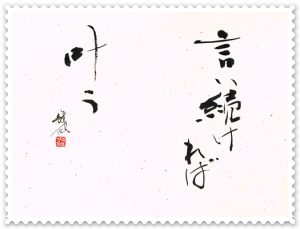 言い続け
れば
叶う